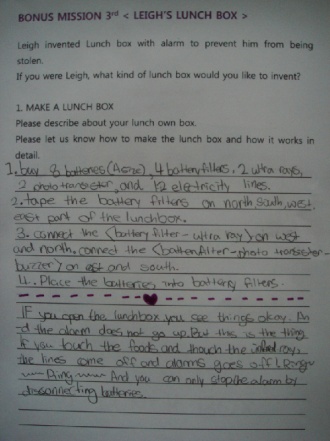 BONUS MISSION 3rd < LEIGH'S LUNCH BOX >
Leigh invented Lunch box with alarm to prevent him from being
stolen.
If you were Leigh, what kind of lunch box would you like to invent?
1. MAKE A LUNCH BOX
Please describe about your lunch own box.
Please let us know how to make the lunch box and how it works in
detail.
1. buy 8 batteries , 4 battery filters, 2 ultra rays,
2 photo transister, and 12 electricity lines.
2. tape the battery filters on north, south, west,
east part of the lunchbox.
3. connect the <battery filter - ultra ray> on west
and north. connect the <battery filter - photo transister -
buzzer> on east and south.
4. Place the batteries into battery filters.
IF you open the lunchbox you see things okay. An
-d the alarm does not go up. But this is the thing
If you touch the foods and though the infrared ray,
the lines come off and alarms goes off!
And you can only stop the alarm by
disconnecting batteries.